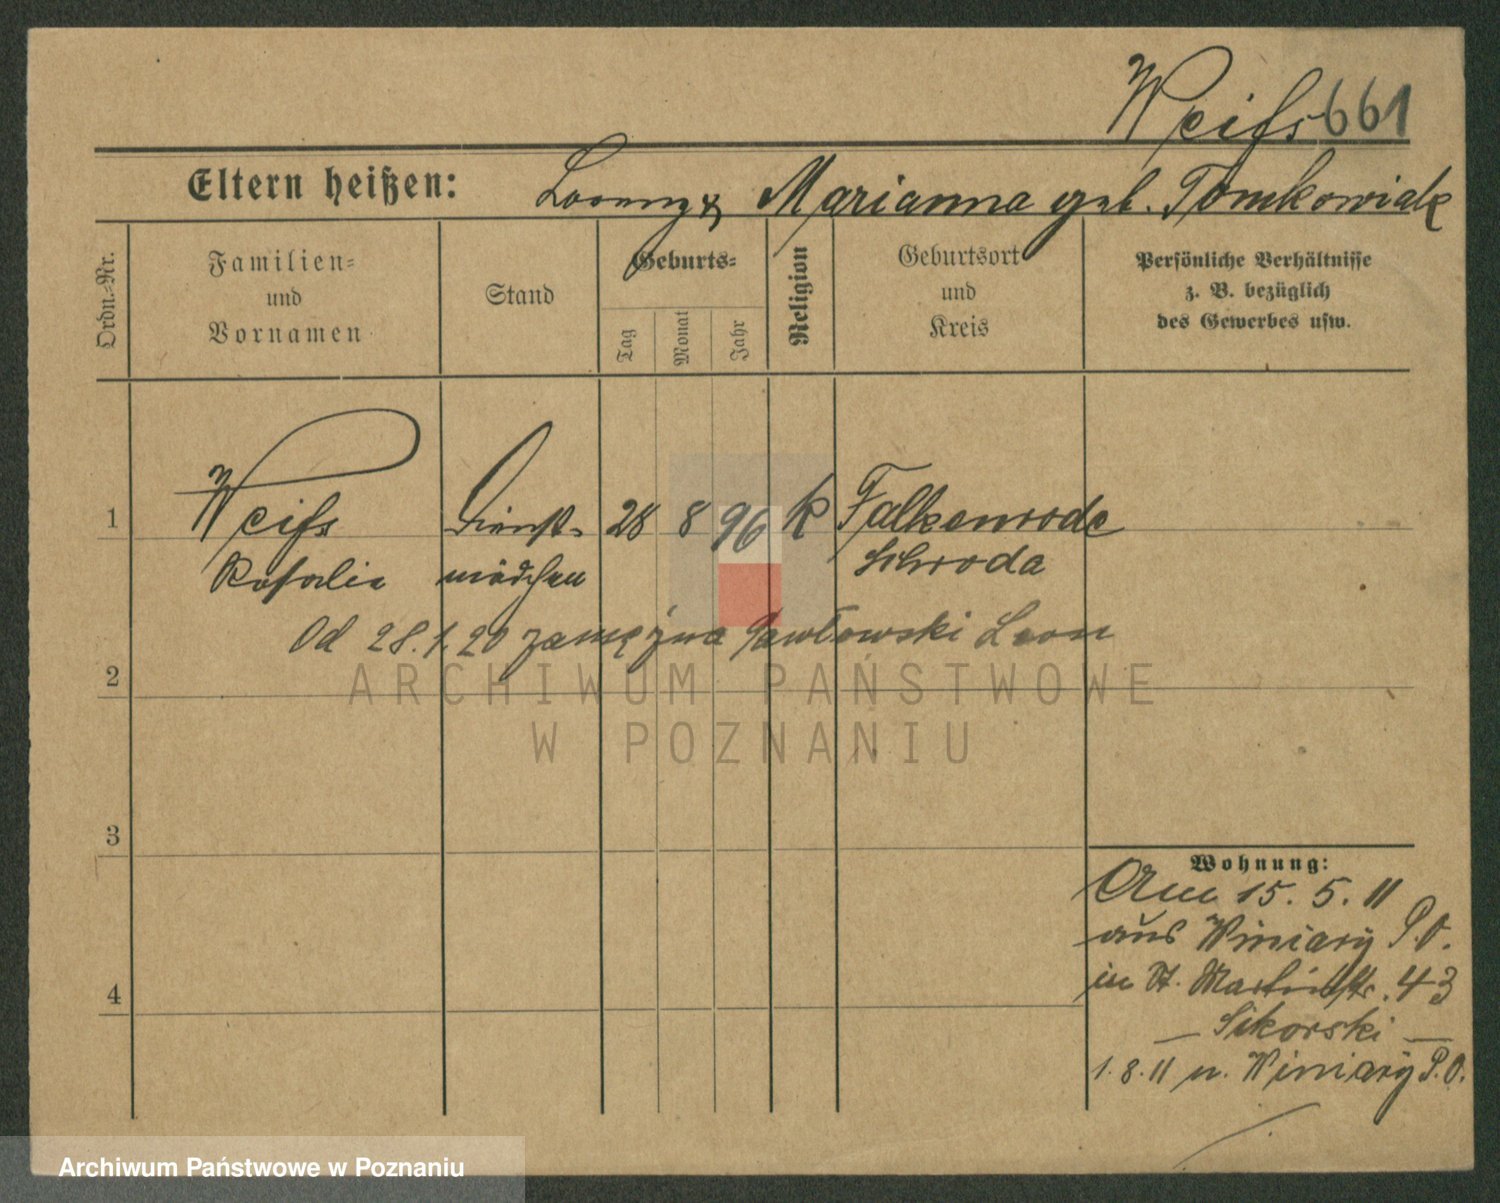 Weiß 661
Eltern heißen: Lorenz & Marianna geb. Tomkowiak
Ordn.-Nr.
Familien-
und
Vornamen
Stand
Geburts-
Tag
Monat
Jahr
Religion
Geburtsort
und
Kreis
Persönliche Verhältnisse
z. B. bezüglich
des Gewerbes usw.
1 Weiß Dienst- 28 8 96 k Falkenrode
Rosalie mädchen Schroda
Od 28.1.20 zamężna Pawłowski Leon
2
3
4
Wohnung:
Am 15. 5. 11
aus Winiary P.O.
in St. Martinstr. 43
— Sikorski —
1.8.11 n. Winiary P.O.
ARCHIWUM PAŃSTWOWE
W POZNANIU
Archiwum Państwowe w Poznaniu